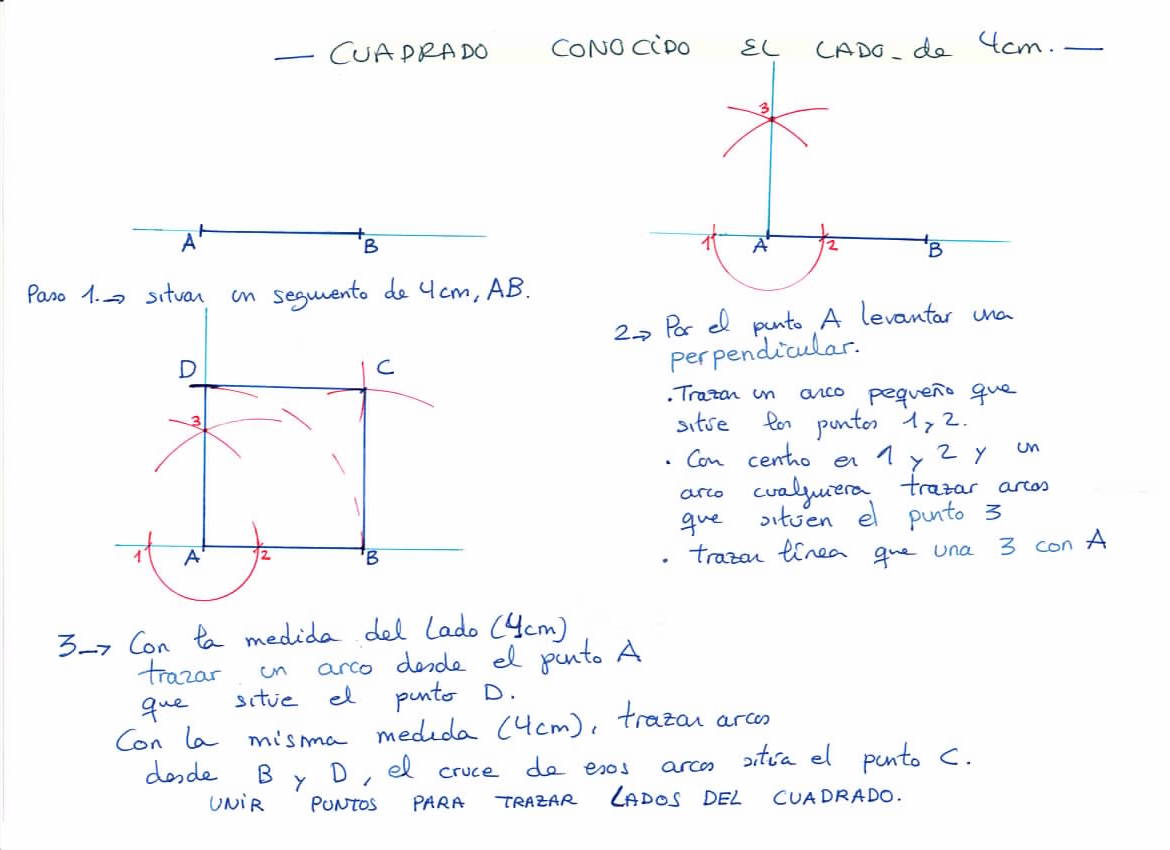 — CUADRADO CONOCIDO EL LADO - de 4cm. —
A B
Paso 1. → situar un segmento de 4cm, AB.
3
1 A 2 B
2 → Por el punto A levantar una
perpendicular.
. Trazar un arco pequeño que
sitúe los puntos 1 y 2.
. Con centro en 1 y 2 y un
arco cualquiera trazar arcos
que sitúen el punto 3
. trazar línea que una 3 con A
D C
3
1 A 2 B
3 → Con la medida del lado (4cm)
trazar un arco desde el punto A
que sitúe el punto D.
Con la misma medida (4cm), trazar arcos
desde B y D, el cruce de esos arcos sitúa el punto C.
UNIR PUNTOS PARA TRAZAR LADOS DEL CUADRADO.